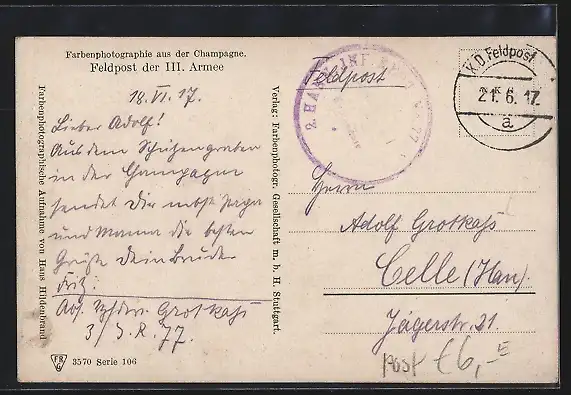 Farbenphotographie aus der Champagne.
Feldpost der III. Armee
18. VI. 17.
Lieber Adolf!
Aus dem Schützengraben
in der Champagne
sendet Dir nebst Papa
und Mamma die besten
Grüße Dein Bruder
Fritz.
Abs. Grotkaß
3/I.R. 77.
3570 Serie 106
Farbenphotographische Aufnahme von Hans Hildenbrand
Verlag: Farbenphotogr. Gesellschaft m. b. H. Stuttgart.
Feldpost
2. HANN. INF. 77
K.D. Feldpost
21. 6. 17.
a
Herrn
Adolf Grotkaß
Celle (Han).
Jägerstr. 21.
post € 6,-